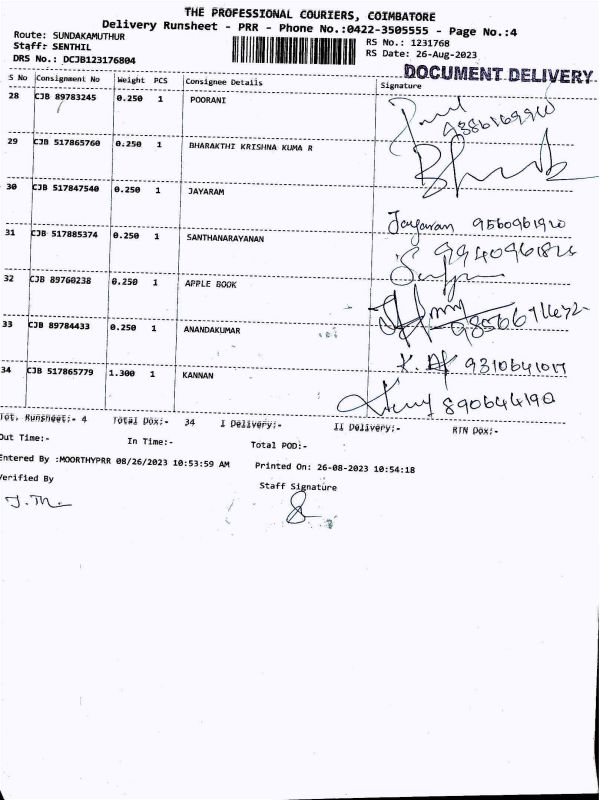 THE PROFESSIONAL COURIERS, COIMBATORE
Delivery Runsheet - PRR - Phone No.:0422-3505555 - Page No.:4
Route: SUNDAKAMUTHUR
RS No.: 1231768
Staff: SENTHIL
RS Date: 26-Aug-2023
DRS No.: DCJB123176804
DOCUMENT DELIVERY
S No Consignment No Weight PCS Consignee Details Signature
28 CJB 89783245 0.250 1 POORANI
29 CJB 517865760 0.250 1 BHARAKTHI KRISHNA KUMA R
30 CJB 517847540 0.250 1 JAYARAM
Jayaram 9560961920
31 CJB 517885374 0.250 1 SANTHANARAYANAN
32 CJB 89760238 0.250 1 APPLE BOOK
33 CJB 89784433 0.250 1 ANANDAKUMAR
9310641017
34 CJB 517865779 1.300 1 KANNAN
8906444190
Tot. Runsheet:- 4 Total Dox:- 34 I Delivery:- II Delivery:- RTN Dox:-
Out Time:- In Time:- Total POD:-
Entered By :MOORTHYPRR 08/26/2023 10:53:59 AM Printed On: 26-08-2023 10:54:18
Verified By Staff Signature